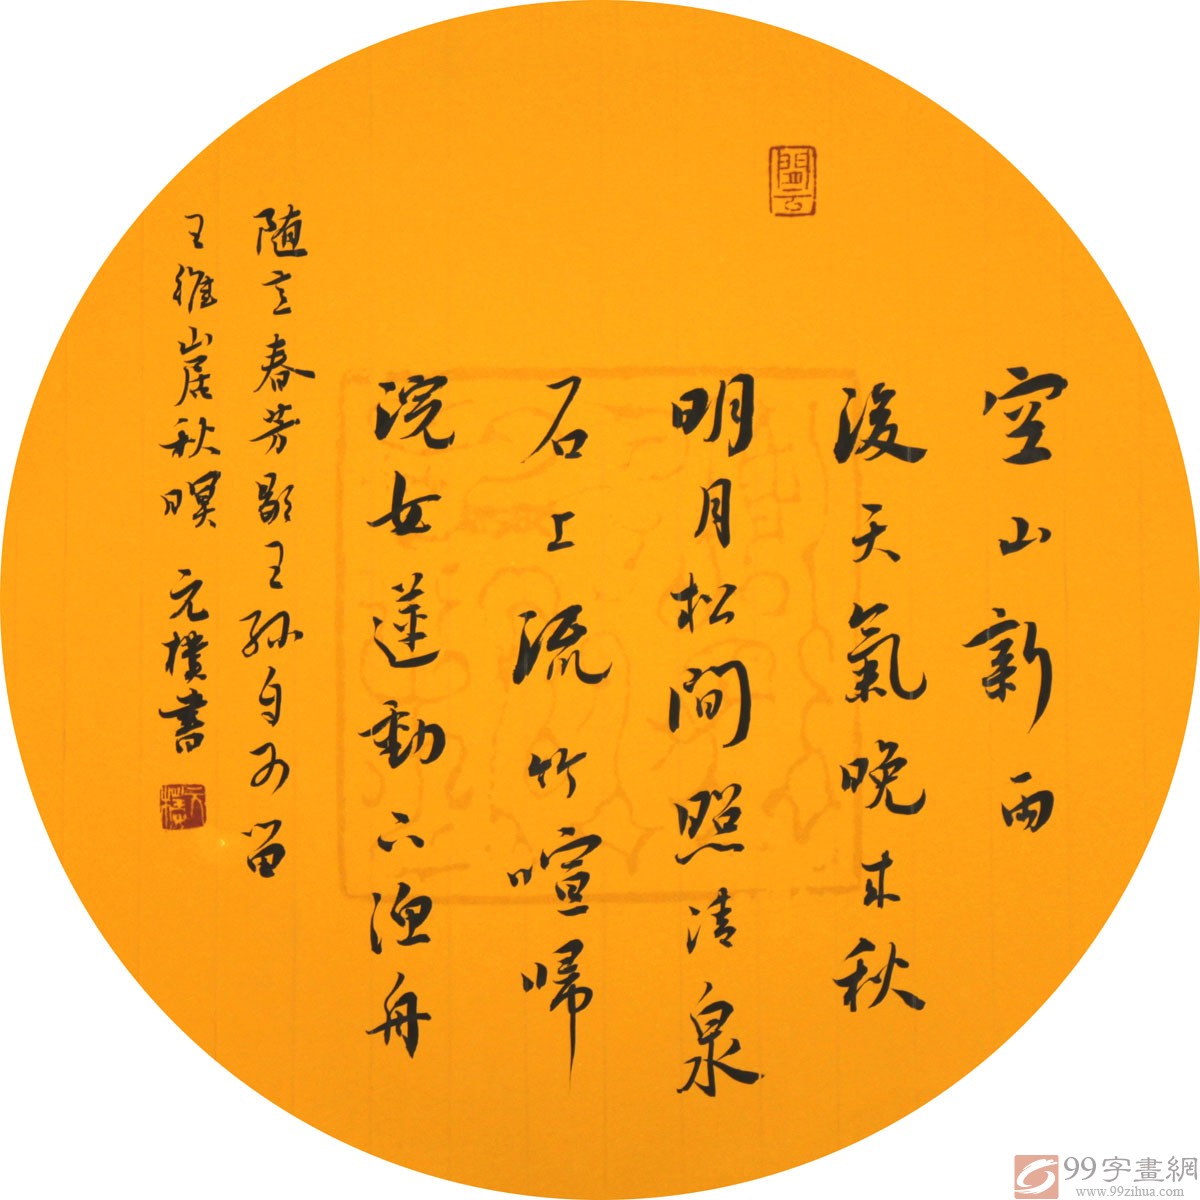 空山新雨
後天氣晚来秋
明月松間照清泉
石上流竹喧歸
浣女蓮動下渔舟
随意春芳歇王孙自可留
王維山居秋暝 元樸書
元樸
99字畫網
www.99zihua.com